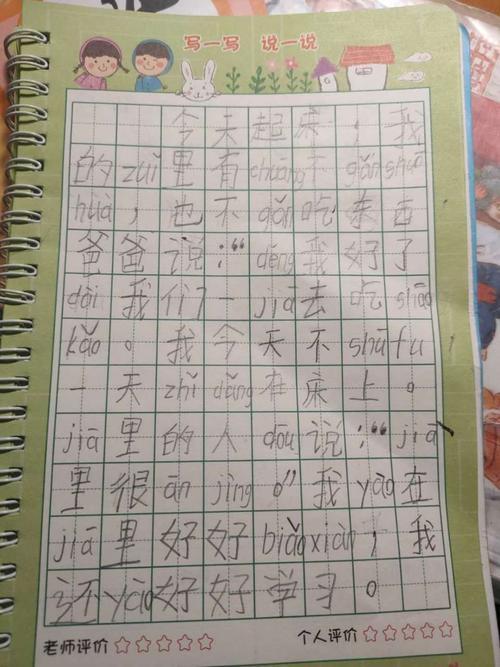 写一写 说一说
今天起床，我
的zuǐ里有chuāng不gǎnshuō
huà，也不gǎn吃东西
爸爸说：“děng我好了
dài我们一jiā去吃shāo
kǎo。我今天不shūfu
一天zhǐdǎng在床上。
jiā里的人dōu说：“jiā
里很ānjìng。”我yào在
jiā里好好biǎoxiàn，我
还yào好好学习。
老师评价☆☆☆☆☆
个人评价☆☆☆☆☆